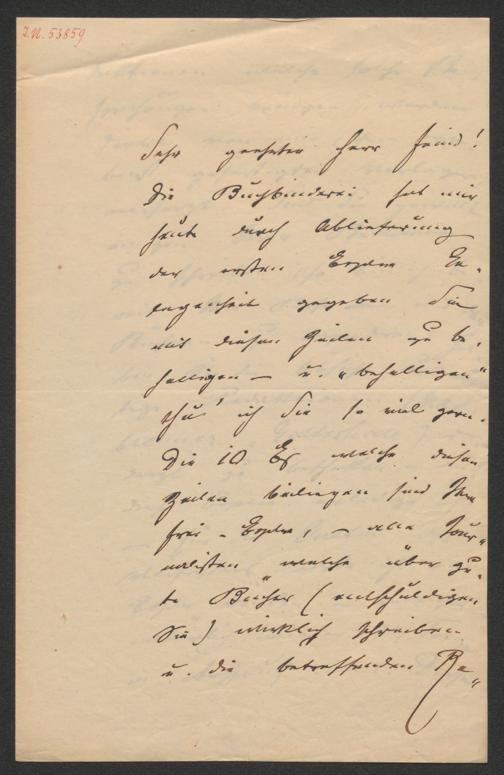 I.N. 53859
Sehr geehrter Herr Feind!
Die Buchbinderei hat mir
heute durch Ablieferung
der ersten Explre Ge-
legenheit gegeben Sie
mit diesen Zeilen zu be-
helligen – u. "behelligen"
thu' ich Sie so viel gern.
Die 10 Ex welche diesen
Zeilen beiliegen sind Ihre
frei-Explre, – alle Jour-
nalisten welche über gu-
te Bücher (entschuldigen
Sie) wirklich schreiben
u. die betreffenden Re-